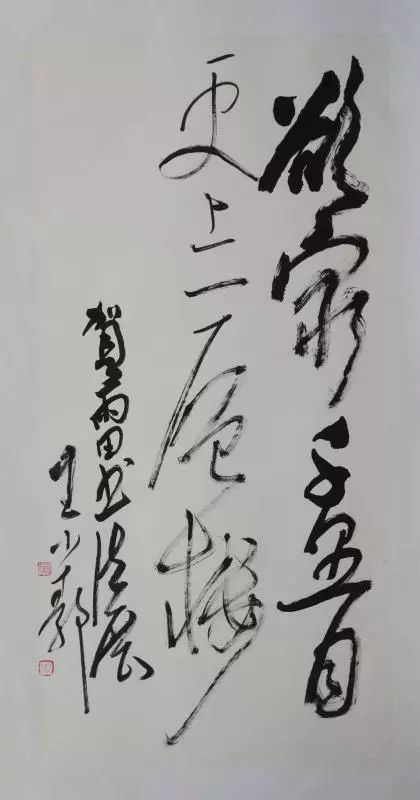 欲穷千里目
更上一层楼
贺雨田书法展
王小